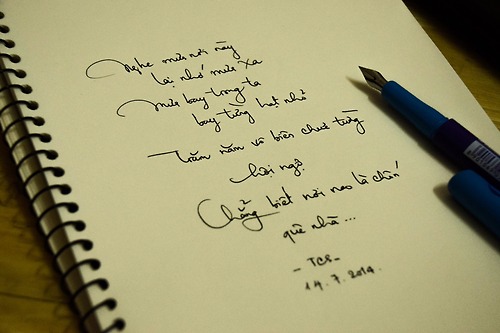 Nghe mưa nơi này
lại nhớ mưa xa
Mưa bay trong ta
bay từng hạt nhỏ
Trăm năm vô biên chưa từng
hội ngộ
Chẳng biết nơi nao là chốn
quê nhà...
- TCS -
14.7.2014.